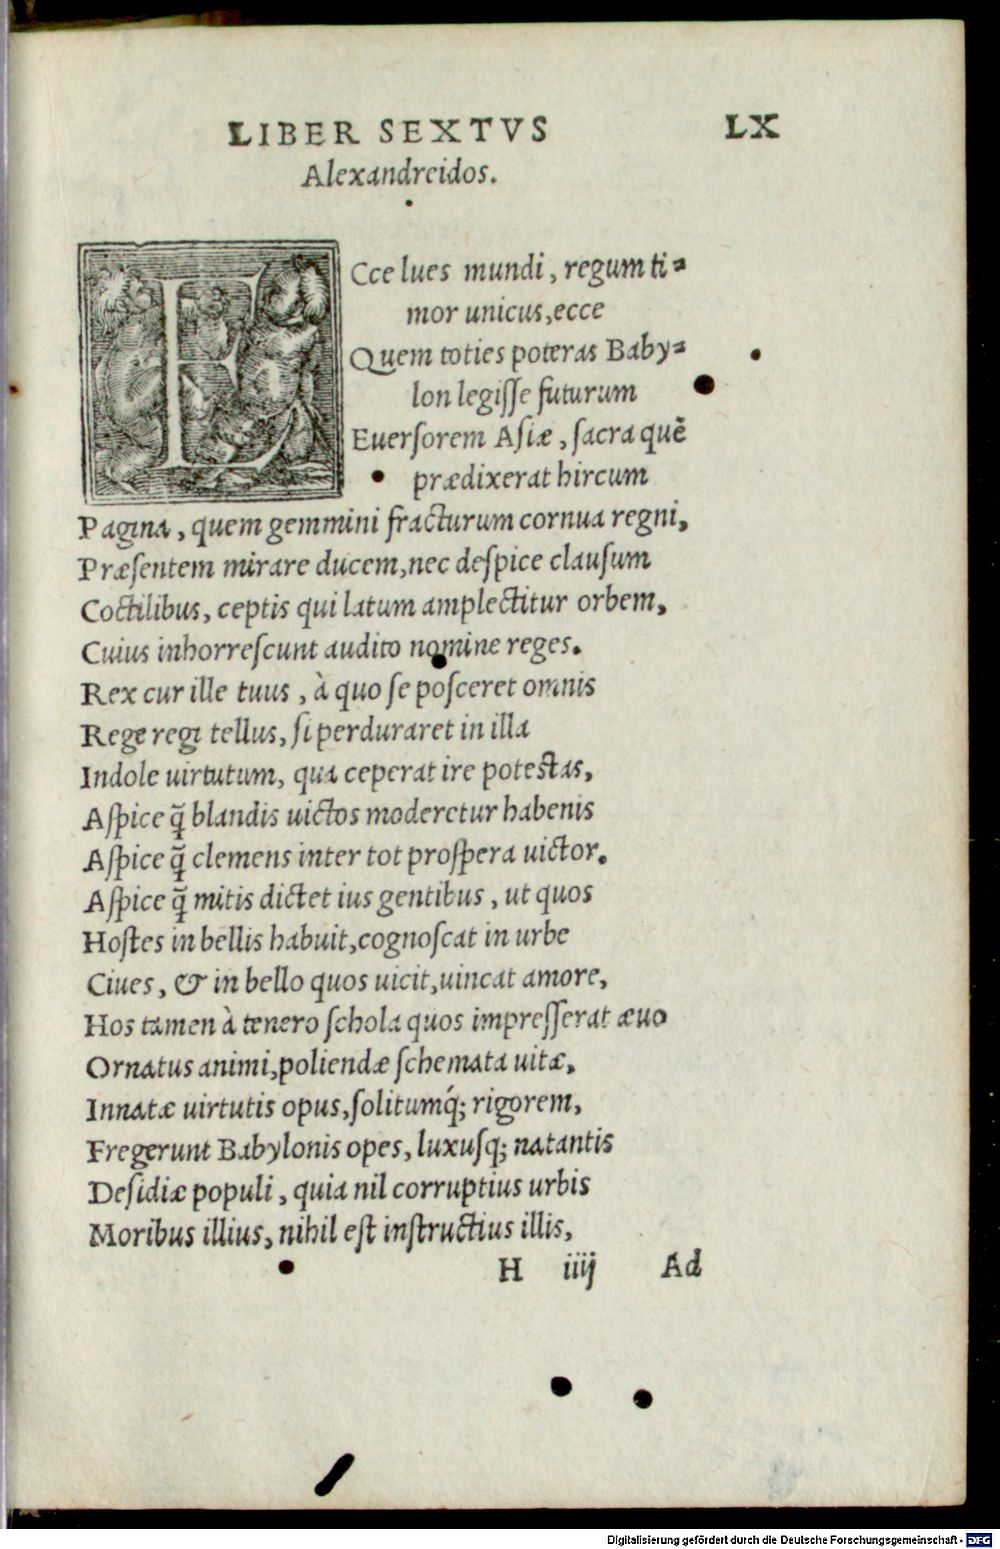 LIBER SEXTVS LX
Alexandreidos.
ECce lues mundi, regum ti=
mor unicus, ecce
Quem toties poteras Baby=
lon legiſſe futurum
Euerſorem Aſiæ, ſacra quẽ
prædixerat hircum
Pagina, quem gemmini fracturum cornua regni,
Præſentem mirare ducem, nec deſpice clauſum
Coctilibus, ceptis qui latum amplectitur orbem,
Cuius inhorreſcunt audito nomine reges.
Rex cur ille tuus, à quo ſe poſceret omnis
Rege regi tellus, ſi perduraret in illa
Indole uirtutum, qua ceperat ire poteſtas,
Aſpice q̃ blandis uictos moderetur habenis
Aſpice q̃ clemens inter tot proſpera uictor.
Aſpice q̃ mitis dictet ius gentibus, ut quos
Hoſtes in bellis habuit, cognoſcat in urbe
Ciues, & in bello quos uicit, uincat amore,
Hos tamen à tenero ſchola quos impreſſerat æuo
Ornatus animi, poliendæ ſchemata uitæ,
Innatæ uirtutis opus, ſolitumq́; rigorem,
Fregerunt Babylonis opes, luxuſq; natantis
Deſidiæ populi, quia nil corruptius urbis
Moribus illius, nihil eſt inſtructius illis,
H iiij Ad
Digitalisierung gefördert durch die Deutsche Forschungsgemeinschaft - DFG